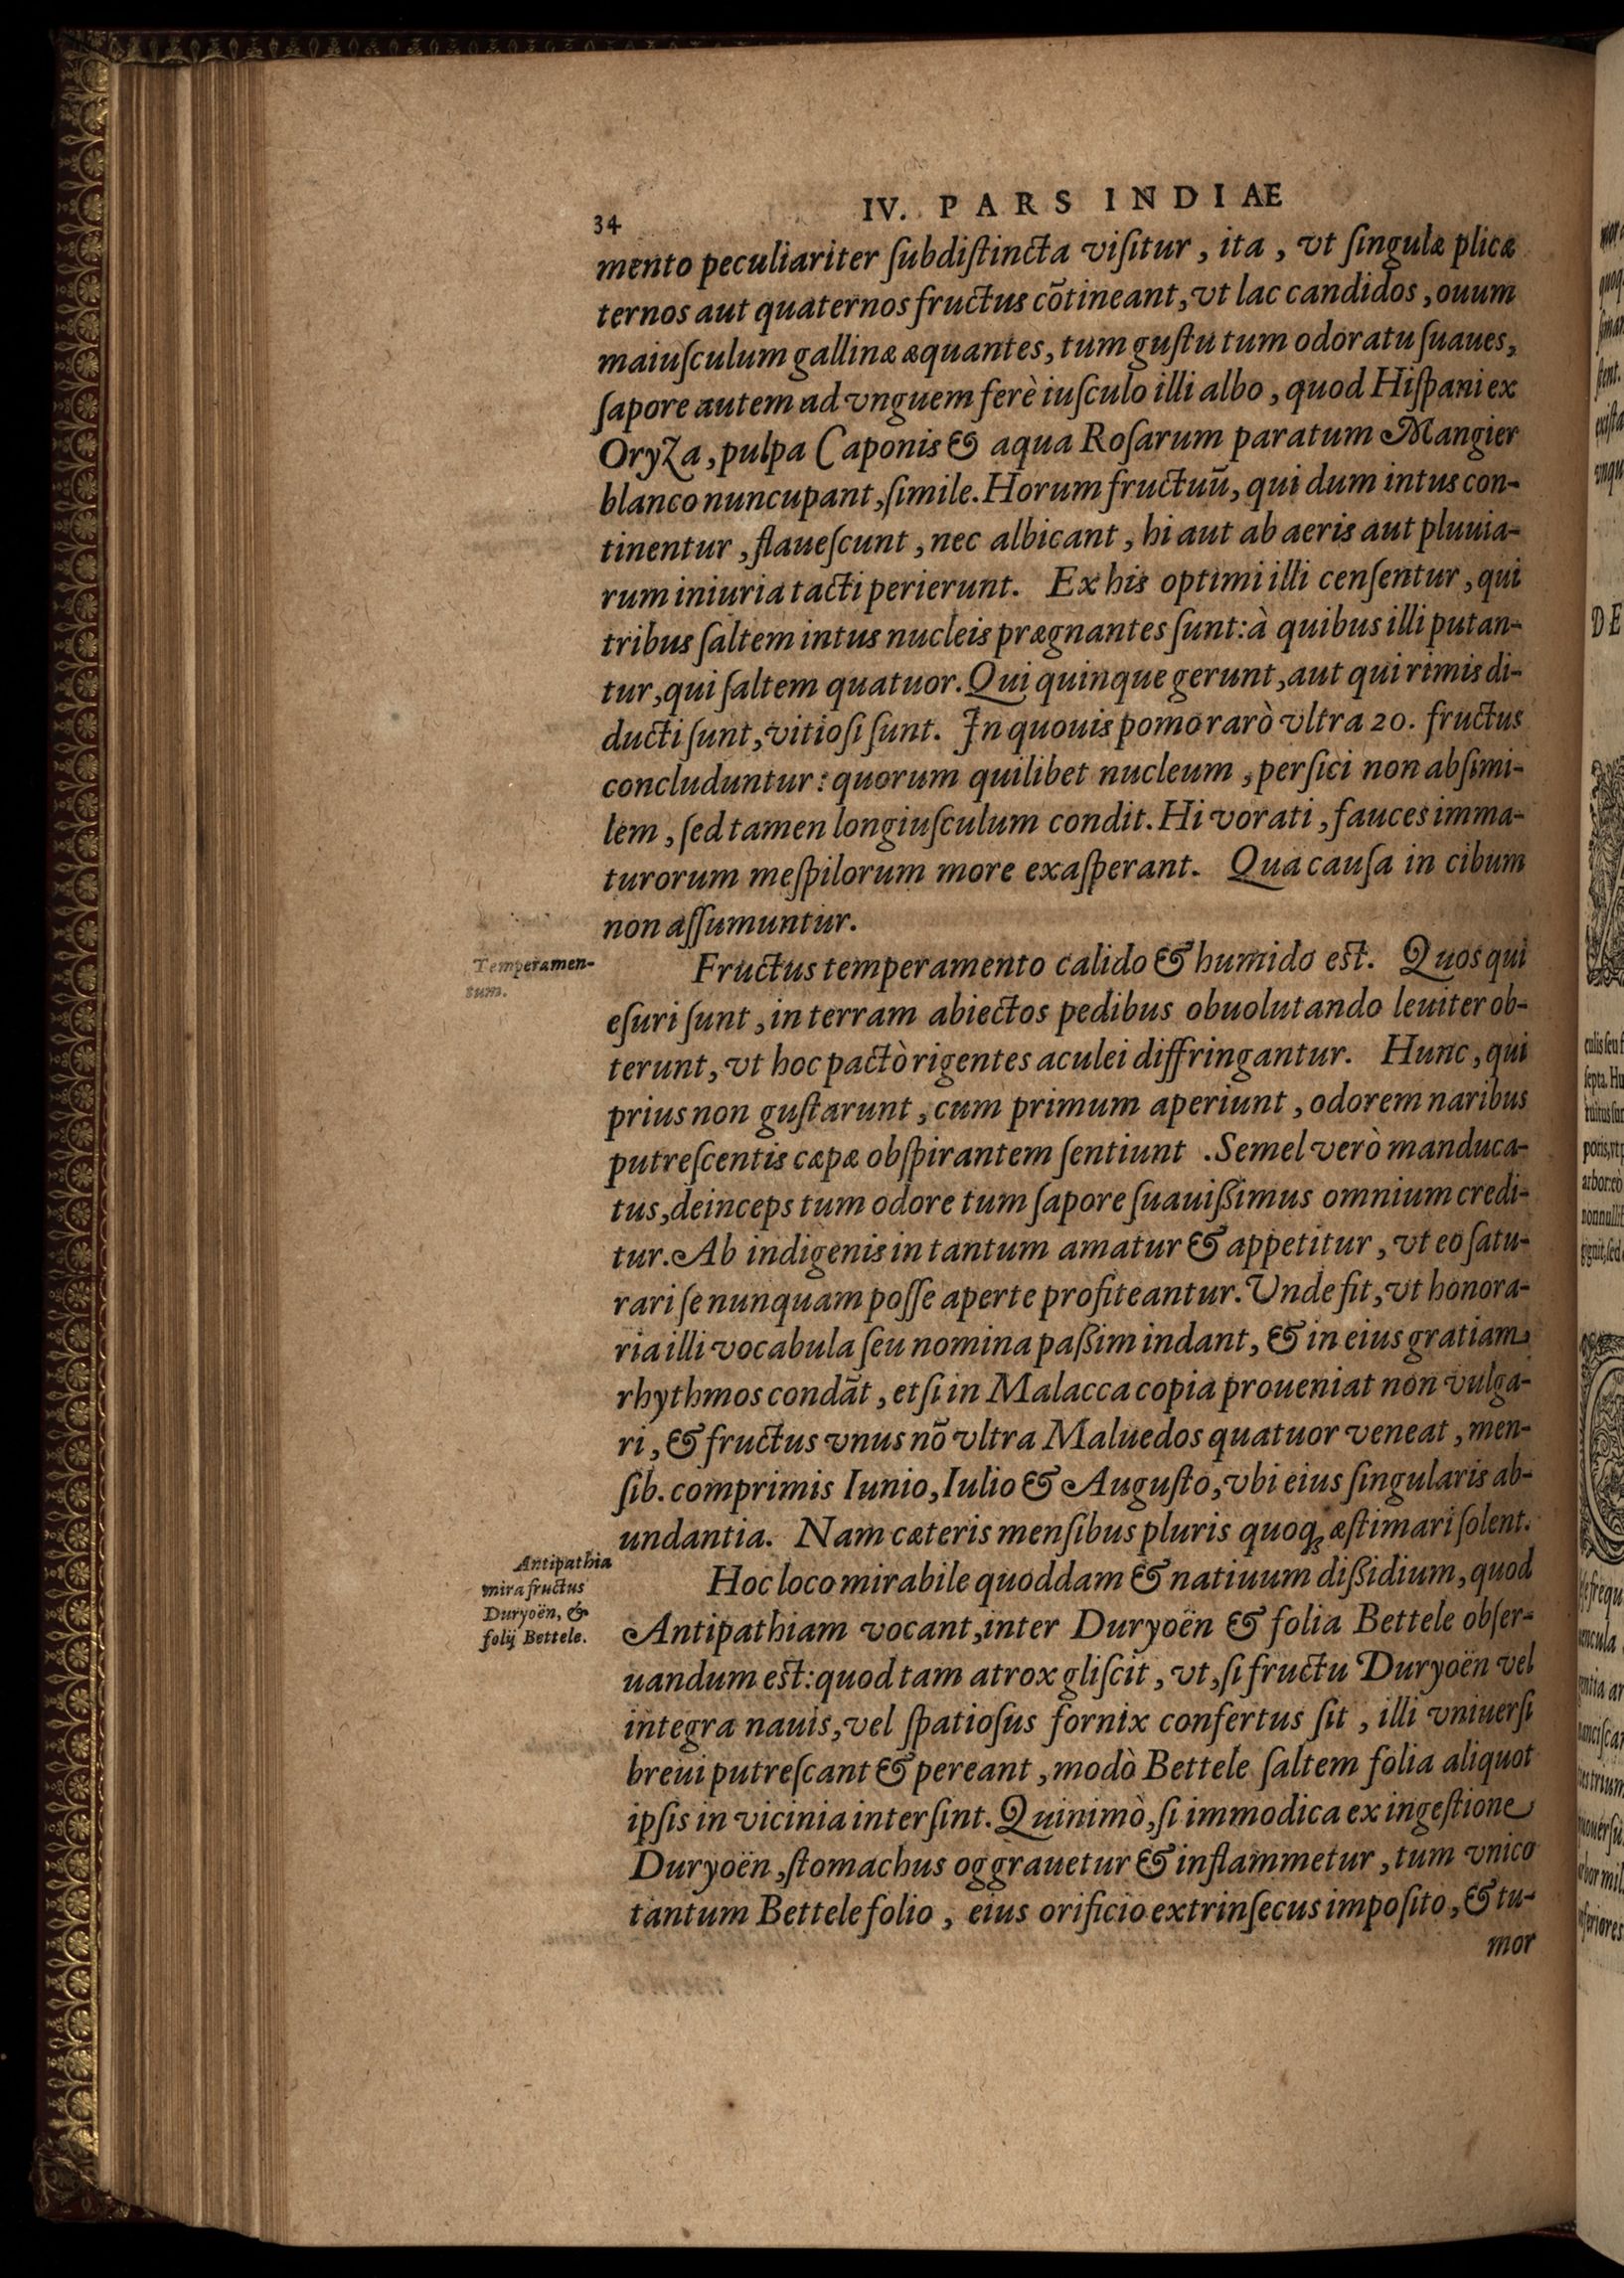 34
IV. PARS INDIAE
mento peculiariter ſubdiſtincta viſitur, ita, vt ſingulæ plicæ
ternos aut quaternos fructus cõtineant, vt lac candidos, ouum
maiuſculum gallinæ æquantes, tum guſtu tum odoratu ſuaues,
ſapore autem ad vnguem ferè iuſculo illi albo, quod Hiſpani ex
Oryza, pulpa Caponis & aqua Roſarum paratum Mangier
blanco nuncupant, ſimile. Horum fructuũ, qui dum intus con-
tinentur, flaueſcunt, nec albicant, hi aut ab aeris aut pluuia-
rum iniuria tacti perierunt. Ex his optimi illi cenſentur, qui
tribus ſaltem intus nucleis prægnantes ſunt: à quibus illi putan-
tur, qui ſaltem quatuor. Qui quinque gerunt, aut qui rimis di-
ducti ſunt, vitioſi ſunt. In quouis pomo rarò vltra 20. fructus
concluduntur: quorum quilibet nucleum, perſici non abſimi-
lem, ſed tamen longiuſculum condit. Hi vorati, fauces imma-
turorum meſpilorum more exaſperant. Qua cauſa in cibum
non aſſumuntur.
Temperamen-
tum.
Fructus temperamento calido & humido est. Quos qui
eſuri ſunt, in terram abiectos pedibus obuolutando leuiter ob-
terunt, vt hoc pactò rigentes aculei diffringantur. Hunc, qui
prius non guſtarunt, cum primum aperiunt, odorem naribus
putreſcentis cæpæ obſpirantem ſentiunt. Semel verò manduca-
tus, deinceps tum odore tum ſapore ſuauißimus omnium credi-
tur. Ab indigenis in tantum amatur & appetitur, vt eo ſatu-
rari ſe nunquam poſſe aperte profiteantur. Unde fit, vt honora-
ria illi vocabula ſeu nomina paßim indant, & in eius gratiam
rhythmos condãt, etſi in Malacca copia proueniat non vulga-
ri, & fructus vnus nõ vltra Maluedos quatuor veneat, men-
ſib. comprimis Iunio, Iulio & Auguſto, vbi eius ſingularis ab-
undantia. Nam cæteris menſibus pluris quoq; æſtimari ſolent.
Antipathia
mira fructus
Duryoën, &
folij Bettele.
Hoc loco mirabile quoddam & natiuum dißidium, quod
Antipathiam vocant, inter Duryoën & folia Bettele obſer-
uandum est: quod tam atrox gliſcit, vt, ſi fructu Duryoën vel
integra nauis, vel ſpatioſus fornix confertus ſit, illi vniuerſi
breui putreſcant & pereant, modò Bettele ſaltem folia aliquot
ipſis in vicinia interſint. Quinimò, ſi immodica ex ingeſtione
Duryoën, ſtomachus oggrauetur & inflammetur, tum vnico
tantum Bettele folio, eius orificio extrinſecus impoſito, & tu-
mor